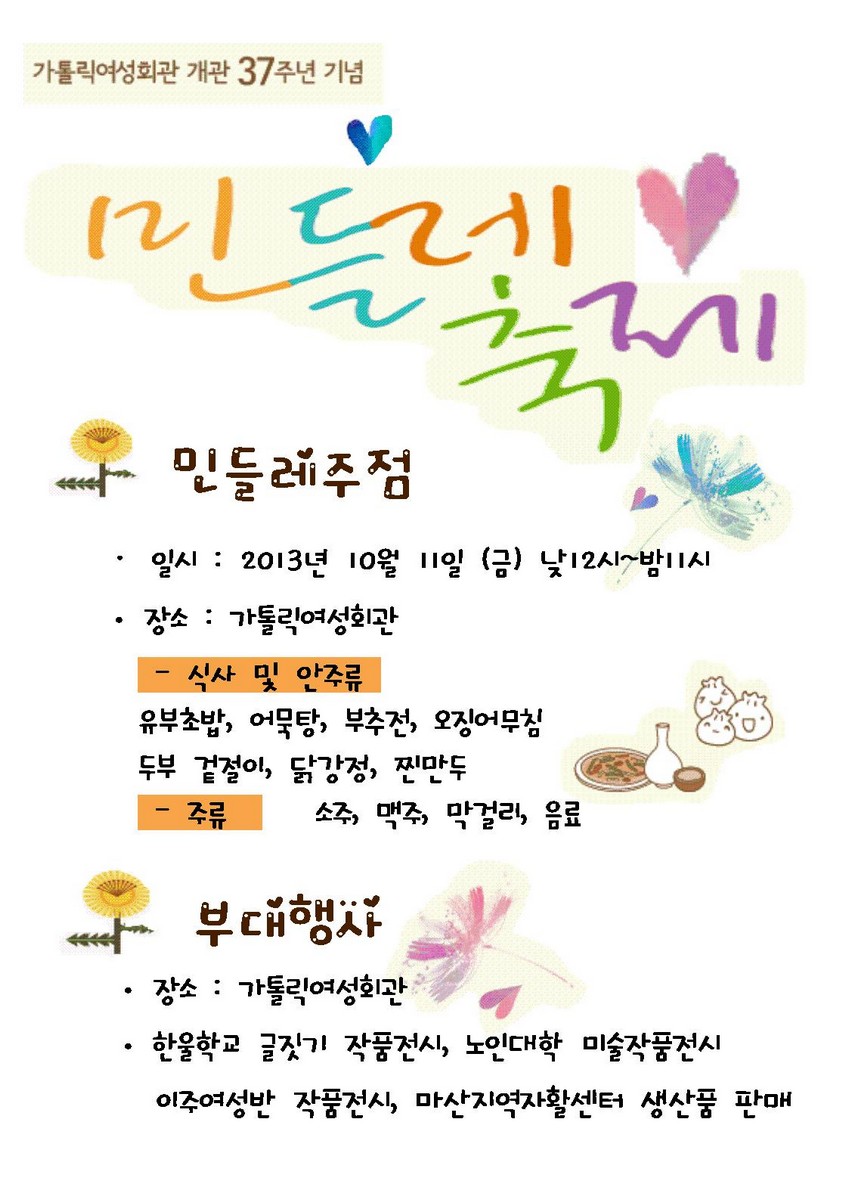 가톨릭여성회관 개관 37주년 기념
민들레
축제
민들레주점
· 일시 : 2013년 10월 11일 (금) 낮12시~밤11시
· 장소 : 가톨릭여성회관
- 식사 및 안주류
유부초밥, 어묵탕, 부추전, 오징어무침
두부 겉절이, 닭강정, 찐만두
- 주류 소주, 맥주, 막걸리, 음료
부대행사
· 장소 : 가톨릭여성회관
· 한울학교 글짓기 작품전시, 노인대학 미술작품전시
이주여성반 작품전시, 마산지역자활센터 생산품 판매